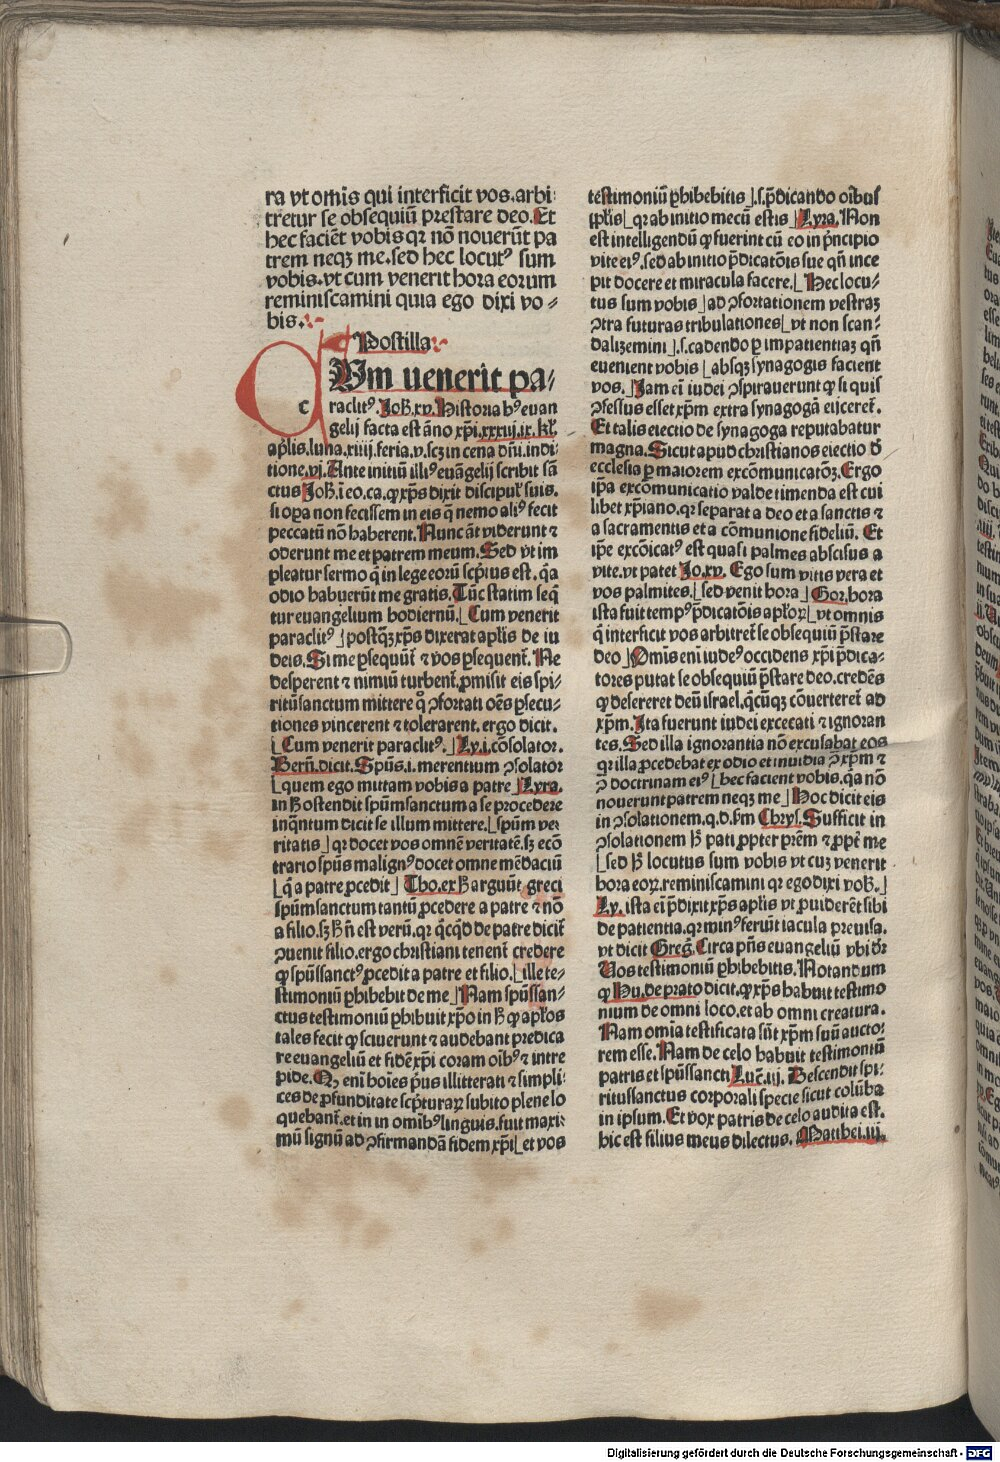 ra vt omĩs qui interficit vos.arbi
tretur se obsequiũ prestare deo.Et
hec faciẽt vobis qꝛ nõ nouerũt pa
trem neqꝫ me.sed hec locutꝰ sum
vobis.vt cum venerit hora eorum
reminiscamini quia ego dixi vo⸗
bis.
Postilla
Vm uenerit pa⸗
c raclitꝰ.Joh̃.xv.Historia hꝰ euan
gelij facta est ãno xp̃i.xxxiij.ix.kl̃.
apl̃is.luna.xiiij.feria.v.scꝫ in cena dñi.indi
tione.vj.Ante initiũ illiꝰ euãgelij scribit sã
ctus Joh̃.ĩ eo.ca.ꝙ xp̃s dixit discipul̃ suis.
si oꝑa non fecissem in eis q̃ nemo aliꝰ fecit
peccatũ nõ haberent.Nunc ãt viderunt ⁊
oderunt me et patrem meum.Sed vt im
pleatur sermo q̃ in lege eorũ scp̃tus est.q̃a
odio habuerũt me gratis.Tũc statim seq̃
tur euangelium hodiernũ.⌊Cum venerit
paraclitꝰ⌋postq̃ꝫ xp̃s dixerat apl̃is de iu
deis.Si me ꝑsequũt̃ ⁊ vos ꝑsequent̃.Ne
desperent ⁊ nimiũ turbent̃.ꝓmisit eis spi⸗
ritũ sanctum mittere q̃ ꝯfortati oẽs ꝑsecu⸗
tiones vincerent ⁊ tolerarent.ergo dicit.
⌊Cum venerit paraclitꝰ.⌋Ly.i.cõsolator.
Bern̄.dicit.Spũs.i.merentium ꝯsolator
⌊quem ego mittam vobis a patre⌋Lyra.
in h̃ ostendit spũmsanctum a se procedere
inq̃ntum dicit se illum mittere.⌊spũm ve⸗
ritatis⌋qꝛ docet vos omnẽ veritatẽ.sꝫ ecõ
trario spũs malignꝰ docet omne mẽdaciũ
⌊q̃ a patre ꝓcedit⌋Tho.ex h̃ arguũt greci
spũmsanctum tantũ ꝓcedere a patre ⁊ nõ
a filio.sꝫ h̃ ñ est verũ.qꝛ q̃cq̃d de patre dicit̃
ꝯuenit filio.ergo christiani tenent̃ credere
ꝙ spũssanctꝰ ꝓcedit a patre et filio.⌊ille te⸗
stimoniũ ꝑhibebit de me⌋Nam spũssan⸗
ctus testimoniũ ꝑhibuit xp̃o in h̃ ꝙ apl̃os
tales fecit ꝙ sciuerunt ⁊ audebant predica
re euangeliũ et fidẽ xp̃i coram oĩbꝰ ⁊ intre
pide.Qꝫ eni hoĩes p̃us illitterati ⁊ simpli⸗
ces de ꝓfunditate scp̃turaꝝ subito plene lo
quebant̃.et in in omĩbꝰ linguis.fuit maxi⸗
mũ signũ ad ꝯfirmandã fidem xp̃i⌊et vos
testimoniũ ꝑhibebitis⌋.s.p̃dicando oĩbus
ipl̃is⌊qꝛ ab initio mecũ estis⌋Lyra.Non
est intelligendũ ꝙ fuerint cũ eo in p̃ncipio
vite eiꝰ.sed ab initio p̃dicatõis sue qñ ince
pit docere et miracula facere.⌊Hec locu⸗
tus sum vobis⌋ad ꝯfortationem vestraꝫ
ꝯtra futuras tribulationes⌊vt non scan⸗
dalizemini⌋.s.cadendo ꝑ impatientiaꝫ qñ
euenient vobis⌊absqꝫ synagogis facient
vos.⌋Jam eĩ iudei ꝯspirauerunt ꝙ si quis
ꝯfessus esset xp̃m extra synagogã eijceret̃.
Et talis eiectio de synagoga reputabatur
magna.Sicut apud christianos eiectio d̃
ecclesia ꝑ maiorem excõmunicatõꝫ.Ergo
ip̃a excõmunicatio valde timenda est cui
libet xp̃iano.qꝛ separat a deo et a sanctis ⁊
a sacramentis et a cõmunione fideliũ.Et
ip̃e excõicatꝰ est quasi palmes abscisus a
vite.vt patet Jo.xv.Ego sum vitis vera et
vos palmites.⌊sed venit hora⌋Gor.hora
ista fuit tempꝰ p̃dicatõis apl̃oꝝ⌊vt omnis
q̃ interficit vos arbitret̃ se obsequiũ p̃stare
deo⌋Omĩs eni iudeꝰ occidens xp̃i p̃dica⸗
tores putat se obsequiũ p̃stare deo.credẽs
ꝙ desereret deũ israel.q̃cũqꝫ cõuerteret̃ ad
xp̃m.Ita fuerunt iudei excecati ⁊ ignoran
tes.Sed illa ignorantia nõ excusabat eos
qꝛ illa ꝓcedebat ex odio et inuidia ꝯ̃ xp̃m ⁊
ꝯ̃ doctrinam eiꝰ⌊hec facient vobis.q̃a nõ
nouerunt patrem neqꝫ me⌋Hoc dicit eis
in ꝯsolationem.q.d.ẜm Chrys.Sufficit in
ꝯsolationem h̃ pati ꝓpter pr̃em ⁊ ꝓpt̃ me
⌊sed h̃ locutus sum vobis vt cuꝫ venerit
hora eoꝝ.reminiscamini qꝛ ego dixi vob̃.⌋
Ly.ista eĩ p̃dixit xp̃s apl̃is vt ꝓuiderẽt sibi
de patientia.qꝛ minꝰ feriũt iacula preuisa.
vt dicit Greg̃.Circa p̃ñs euangeliũ vbi dr̃
Vos testimoniũ ꝑhibebitis.Notandum
ꝙ Hu.de prato dicit.ꝙ xp̃s habuit testimo
nium de omni loco.et ab omni creatura.
Nam omĩa testificata sũt xp̃m suũ aucto⸗
rem esse.Nam de celo habuit testimoniũ
patris et spũssancti Luc̃.iij.Descendit spi⸗
ritussanctus corporali specie sicut colũba
in ipsum.Et vox patris de celo audita est.
hic est filius meus dilectus.Matthei.iij.
Digitalisierung gefördert durch die Deutsche Forschungsgemeinschaft - DFG